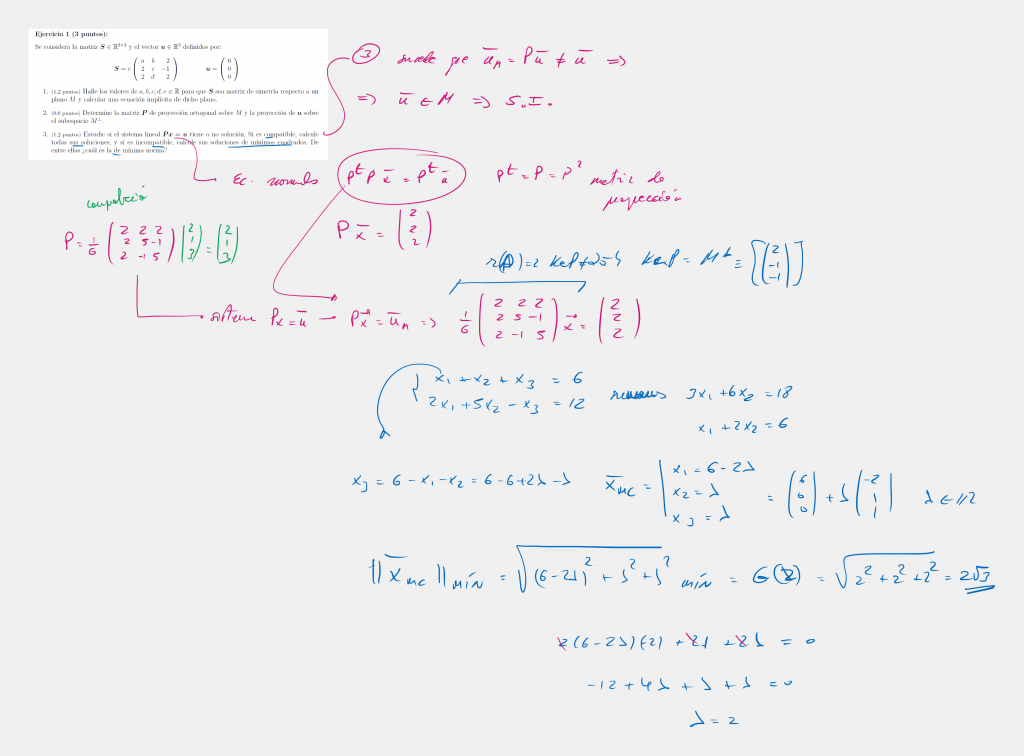 Ejercicio 1 (3 puntos):
Se considera la matriz S ∈ ℝ³ˣ³ y el vector u ∈ ℝ³ definidos por:
S = c ( a b 2 ; 2 c −1 ; 2 d 2 ) u = ( 6 ; 0 ; 0 )
1. (1.2 puntos) Halle los valores de a, b, c, d, e ∈ ℝ para que S sea matriz de simetría respecto a un
plano M y calcular una ecuación implícita de dicho plano.
2. (0.6 puntos) Determine la matriz P de proyección ortogonal sobre M y la proyección de u sobre
el subespacio M⊥.
3. (1.2 puntos) Estudie si el sistema lineal Px = u tiene o no solución. Si es compatible, calcule
todas sus soluciones, y si es incompatible, calcule sus soluciones de mínimos cuadrados. De
entre ellas ¿cuál es la de mínima norma?
③ sucede que ū_M = Pū ≠ ū ⇒
⇒ ū ∉ M ⇒ S.I.
Ec. normales PᵗP x̄ = Pᵗ ū Pᵗ = P = P² matriz de
proyección
comprobación
P = 1/6 ( 2 2 2 ; 2 5 -1 ; 2 -1 5 ) ( 2 ; 1 ; 3 ) = ( 2 ; 1 ; 3 )
P x̄ = ( 2 ; 2 ; 2 )
Ker P = M⊥ ≡ [ ( 2 ; -1 ; -1 ) ]
sistema Px = ū → Px̄ = ū_M ⇒ 1/6 ( 2 2 2 ; 2 5 -1 ; 2 -1 5 ) x̄ = ( 2 ; 2 ; 2 )
x₁ + x₂ + x₃ = 6
2x₁ + 5x₂ - x₃ = 12 3x₁ + 6x₂ = 18
x₁ + 2x₂ = 6
x₃ = 6 - x₁ - x₂ = 6 - 6 + 2λ - λ x̄_MC = | x₁ = 6 - 2λ ; x₂ = λ ; x₃ = λ = ( 6 ; 0 ; 0 ) + λ ( -2 ; 1 ; 1 ) λ ∈ ℝ
||x̄_MC||mín = √((6-2λ)² + λ² + λ²) mín = 6(2) = √(2² + 2² + 2²) = 2√3
2(6-2λ)(-2) + 2λ + 2λ = 0
-12 + 4λ + λ + λ = 0
λ = 2